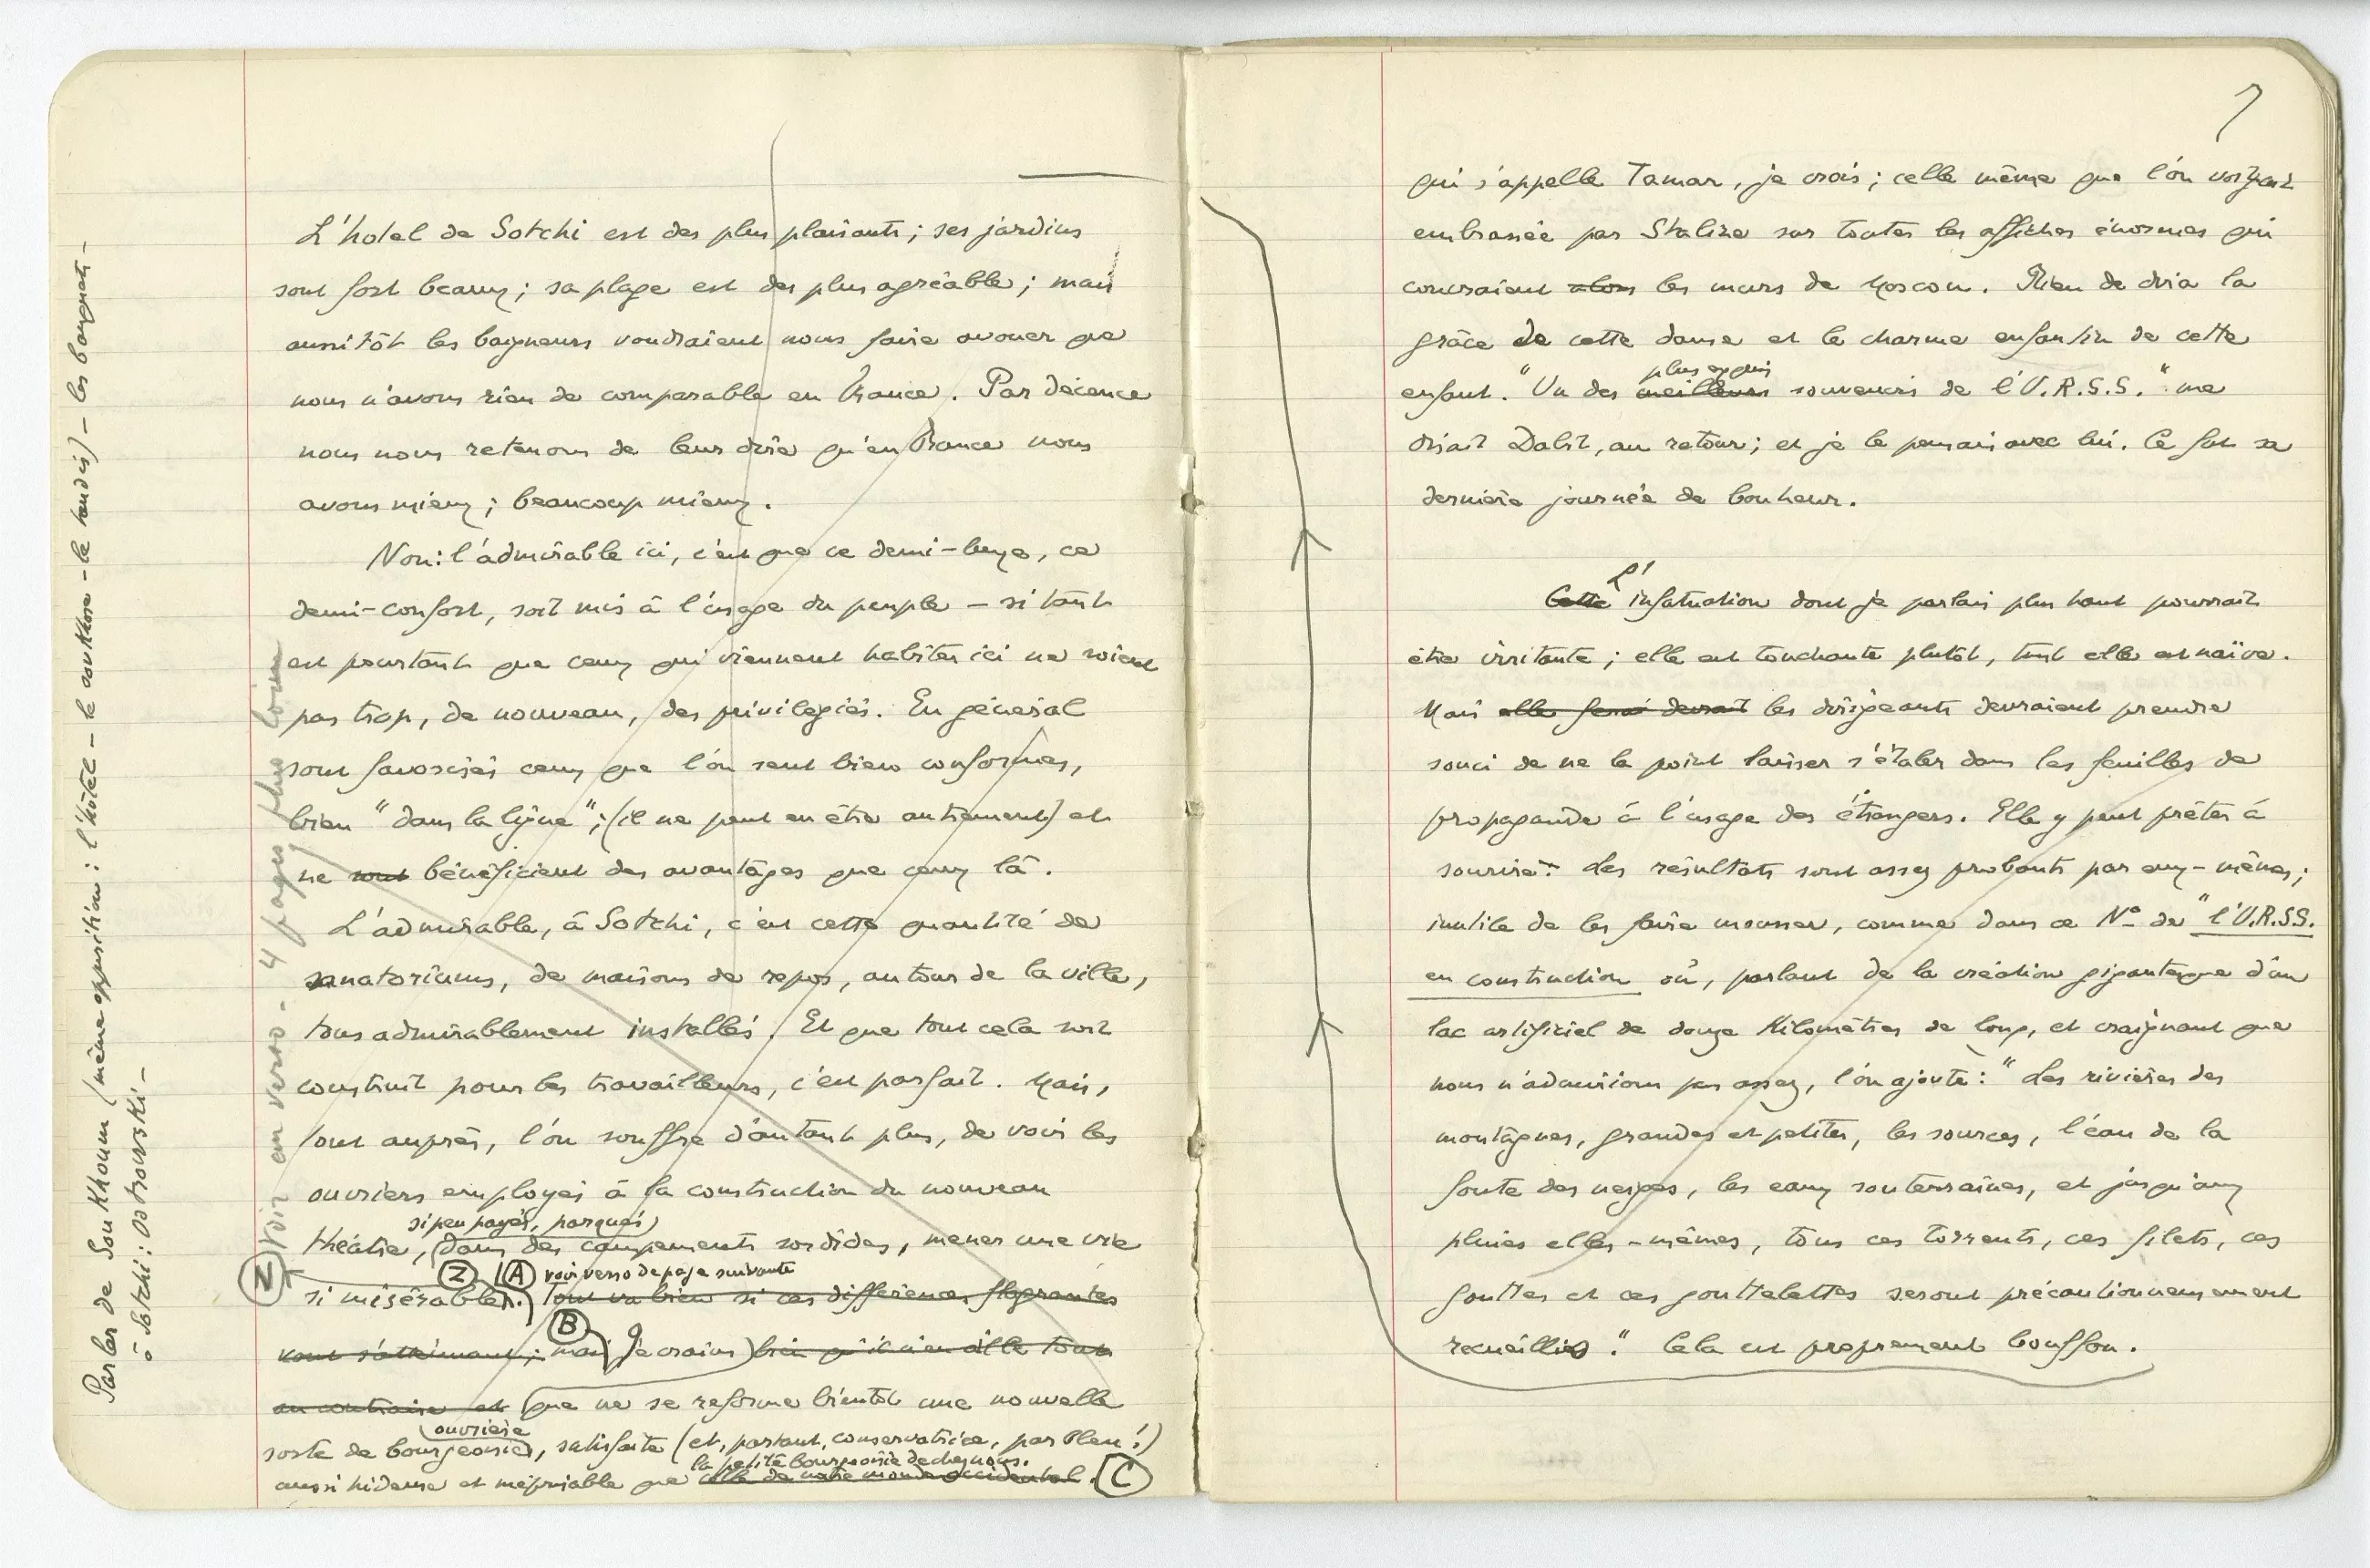 Parler de Soukhoum (même opposition : l'hôtel – le sovkhose – le taudis) – les bagnards –
à Sotchi : Ostrowski –
Voir au verso – 4 pages plus loin
L'hotel de Sotchi est des plus plaisants ; ses jardins
sont fort beaux ; sa plage est des plus agréable ; mais
aussitôt les baigneurs voudraient nous faire avouer que
nous n'avons rien de comparable en France. Par décence
nous nous retenons de leur dire qu'en France nous
avons mieux ; beaucoup mieux.
Non : l'admirable ici, c'est que ce demi-luxe, ce
demi-confort, soit mis à l'usage du peuple – si tant
est pourtant que ceux qui viennent habiter ici ne soient
pas trop, de nouveau, des privilégiés. En général
sont favorisés ceux que l'on sent bien conformes,
bien "dans la ligne" ; (il ne peut en être autrement) et
ne sont bénéficient des avantages que ceux là.
L'admirable, à Sotchi, c'est cette quantité de
sanatoriums, de maisons de repos, autour de la ville,
tous admirablement installés. Et que tout cela soit
construit pour les travailleurs, c'est parfait. Mais,
tout auprès, l'on souffre d'autant plus, de voir les
ouvriers employés à la construction du nouveau
si peu payés, parqués
théâtre, dans des campements sordides, mener une vie
Z Z A voir verso de page suivante
si misérable. Tout va bien si ces différences flagrantes
B
vont s'atténuant ; mais je crains bien qu'il n'en aille tout
au contraire et que ne se reforme bientôt une nouvelle
ouvrière
sorte de bourgeoisie, satisfaite (et, partant, conservatrice, parbleu !)
la petite bourgeoisie de chez nous.
aussi hideuse et méprisable que celle de notre monde occidental. C
7
qui s'appelle Tamar, je crois ; celle même que l'on voyait
embrassée par Staline sur toutes les affiches énormes qui
couvraient alors les murs de Moscou. Rien ne dira la
grâce de cette danse et le charme enfantin de cette
plus exquis
enfant. "Un des meilleurs souvenirs de l'U.R.S.S." me
disait Dabit, au retour ; et je le pensais avec lui. Ce fut sa
dernière journée de bonheur.
L'
Cette infatuation dont je parlais plus haut pourrait
être irritante ; elle est touchante plutôt, tant elle est naïve.
Mais elle devrait les dirigeants devraient prendre
souci de ne la point laisser s'étaler dans les feuilles de
propagande à l'usage des étrangers. Elle y peut prêter à
sourire. Les résultats sont assez probants par eux-mêmes ;
inutile de les faire mousser, comme dans ce N° de "l'U.R.S.S.
en construction où, parlant de la création gigantesque d'un
lac artificiel de douze kilomètres de long, et craignant que
nous n'admirions pas assez, l'on ajoute : "Les rivières des
montagnes, grandes et petites, les sources, l'eau de la
fonte des neiges, les eaux souterraines, et jusqu'aux
pluies elles-mêmes, tous ces torrents, ces filets, ces
gouttes et ces gouttelettes seront précautionneusement
recueillies." Cela est proprement bouffon.